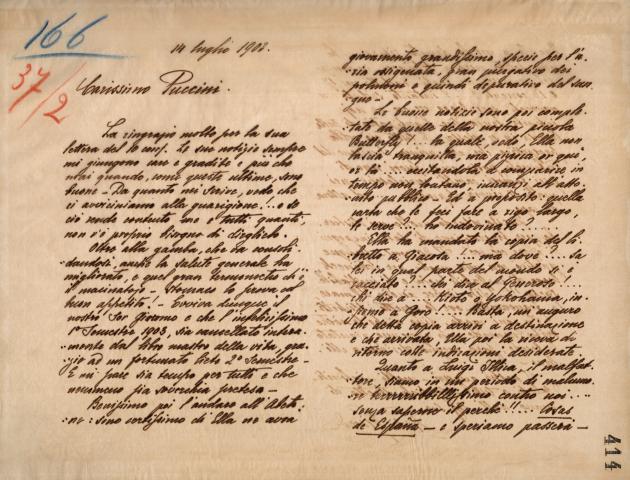 166
37/2
14 luglio 1903.
Carissimo Puccini.
La ringrazio molto per la sua
lettera del 10 corr. Le sue notizie sempre
mi giungono care e gradite e più che
mai quando, come queste ultime, sono
buone - Da quanto mi scrive, vedo che
ci avviciniamo alla guarigione!.. e se
ciò rende contento me e tutti quanti,
non v'è proprio bisogno di dirglielo.
Oltre alla gamba, che va consoli-
dandosi, anche la salute generale ha
migliorato, e quel gran
il macinatojo - Stomaco lo prova col
buon appetito! - Evviva dunque il
nostro Ser Giacomo e che l'infelicissimo
1º Semestre 1903, sia cancellato intera-
mente dal libro mastro della vita, gra-
zie ad un fortunato lieto 2º Semestre -
E mi pare sia tempo per tutti e che
nemmeno sia soverchia pretesa -
Benissimo poi l'andare all'Abeto-
ne: sono certissimo di Ella ne avrà
giovamento grandissimo, specie per l'a-
ria ossigenata, gran purgativo dei
polmoni e quindi depurativo del san-
gue.
Le buone notizie sono poi comple-
tate da quelle della nostra piccola
Butterfly!... la quale, vedo, Ella non
lascia tranquilla, ma pizzica or qui,
or là... eccitandola a comparire in
tempo non lontano, innanzi all'
pubblico - Ed a proposito: quella
carta che le feci fare a rigo largo,
le serve?... ho indovinato?...
Ella ha mandato la copia del li-
bretto a Giacosa... ma dove?... Sa
lei in qual parte del mondo si è
cacciato?... Chi dice al
Chi dice a... Kioto o Yokohama, in-
sieme a Goro!... Basta, un auguro
che detta copia arrivi a destinazione
e che arrivata, Ella poi la riceva di
ritorno colle indicazioni desiderate
Quanto a Luigi Illica, il malfat-
tore, siamo in un periodo di malumo-
re contro noi...
senza saperne il perché!!... Cosas
de España - e speriamo passerà -
414